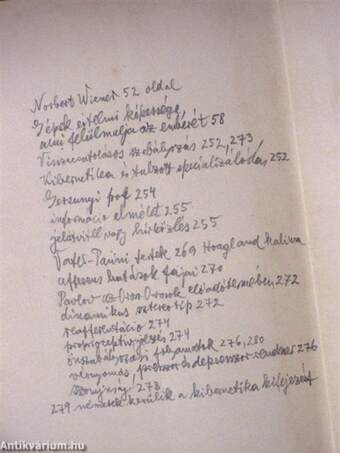 Norbert Wiener 52 oldal
Gépek értelmi képessége
ami felülmulja az emberét 58
Visszacsatolásos szabályozás 252, 273
Kibernetika és tulzott specializálódás, 252
Gersunyi prof 254
információ elmélet 255
jelátvitel vagy hírközlés 255
Vater-Pacini testek 269 Hoagland
afferens hatások fajai 270
Pavlov az Orosz Orvosok előadótermében 272
dinamikus stereotip 272
reafferentáció 274
proprioceptiv jelzés 274
önszabályozási folyamatok 276, 280
vérnyomás, pressor és depressor rendszer 276
szomjuság 278
279 németek kerülik a kibernetika kifejezést
Antikvárium.hu